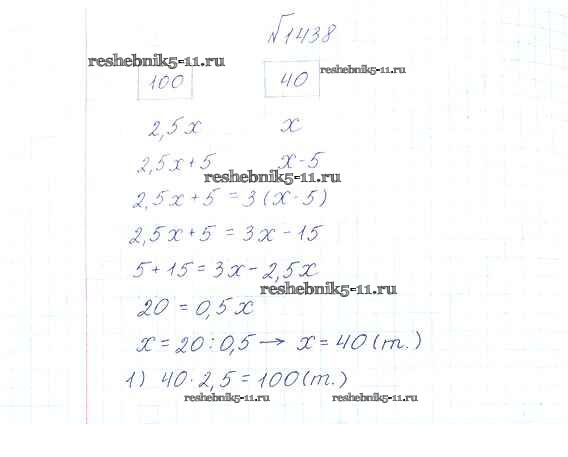 №1438
reshebnik5-11.ru
reshebnik5-11.ru
100 40
2,5x x
2,5x+5 x-5
reshebnik5-11.ru
2,5x+5=3(x-5)
2,5x+5=3x-15
5+15=3x-2,5x
reshebnik5-11.ru
20=0,5x
x=20:0,5→ x=40(т.)
1) 40·2,5=100(т.)
reshebnik5-11.ru reshebnik5-11.ru